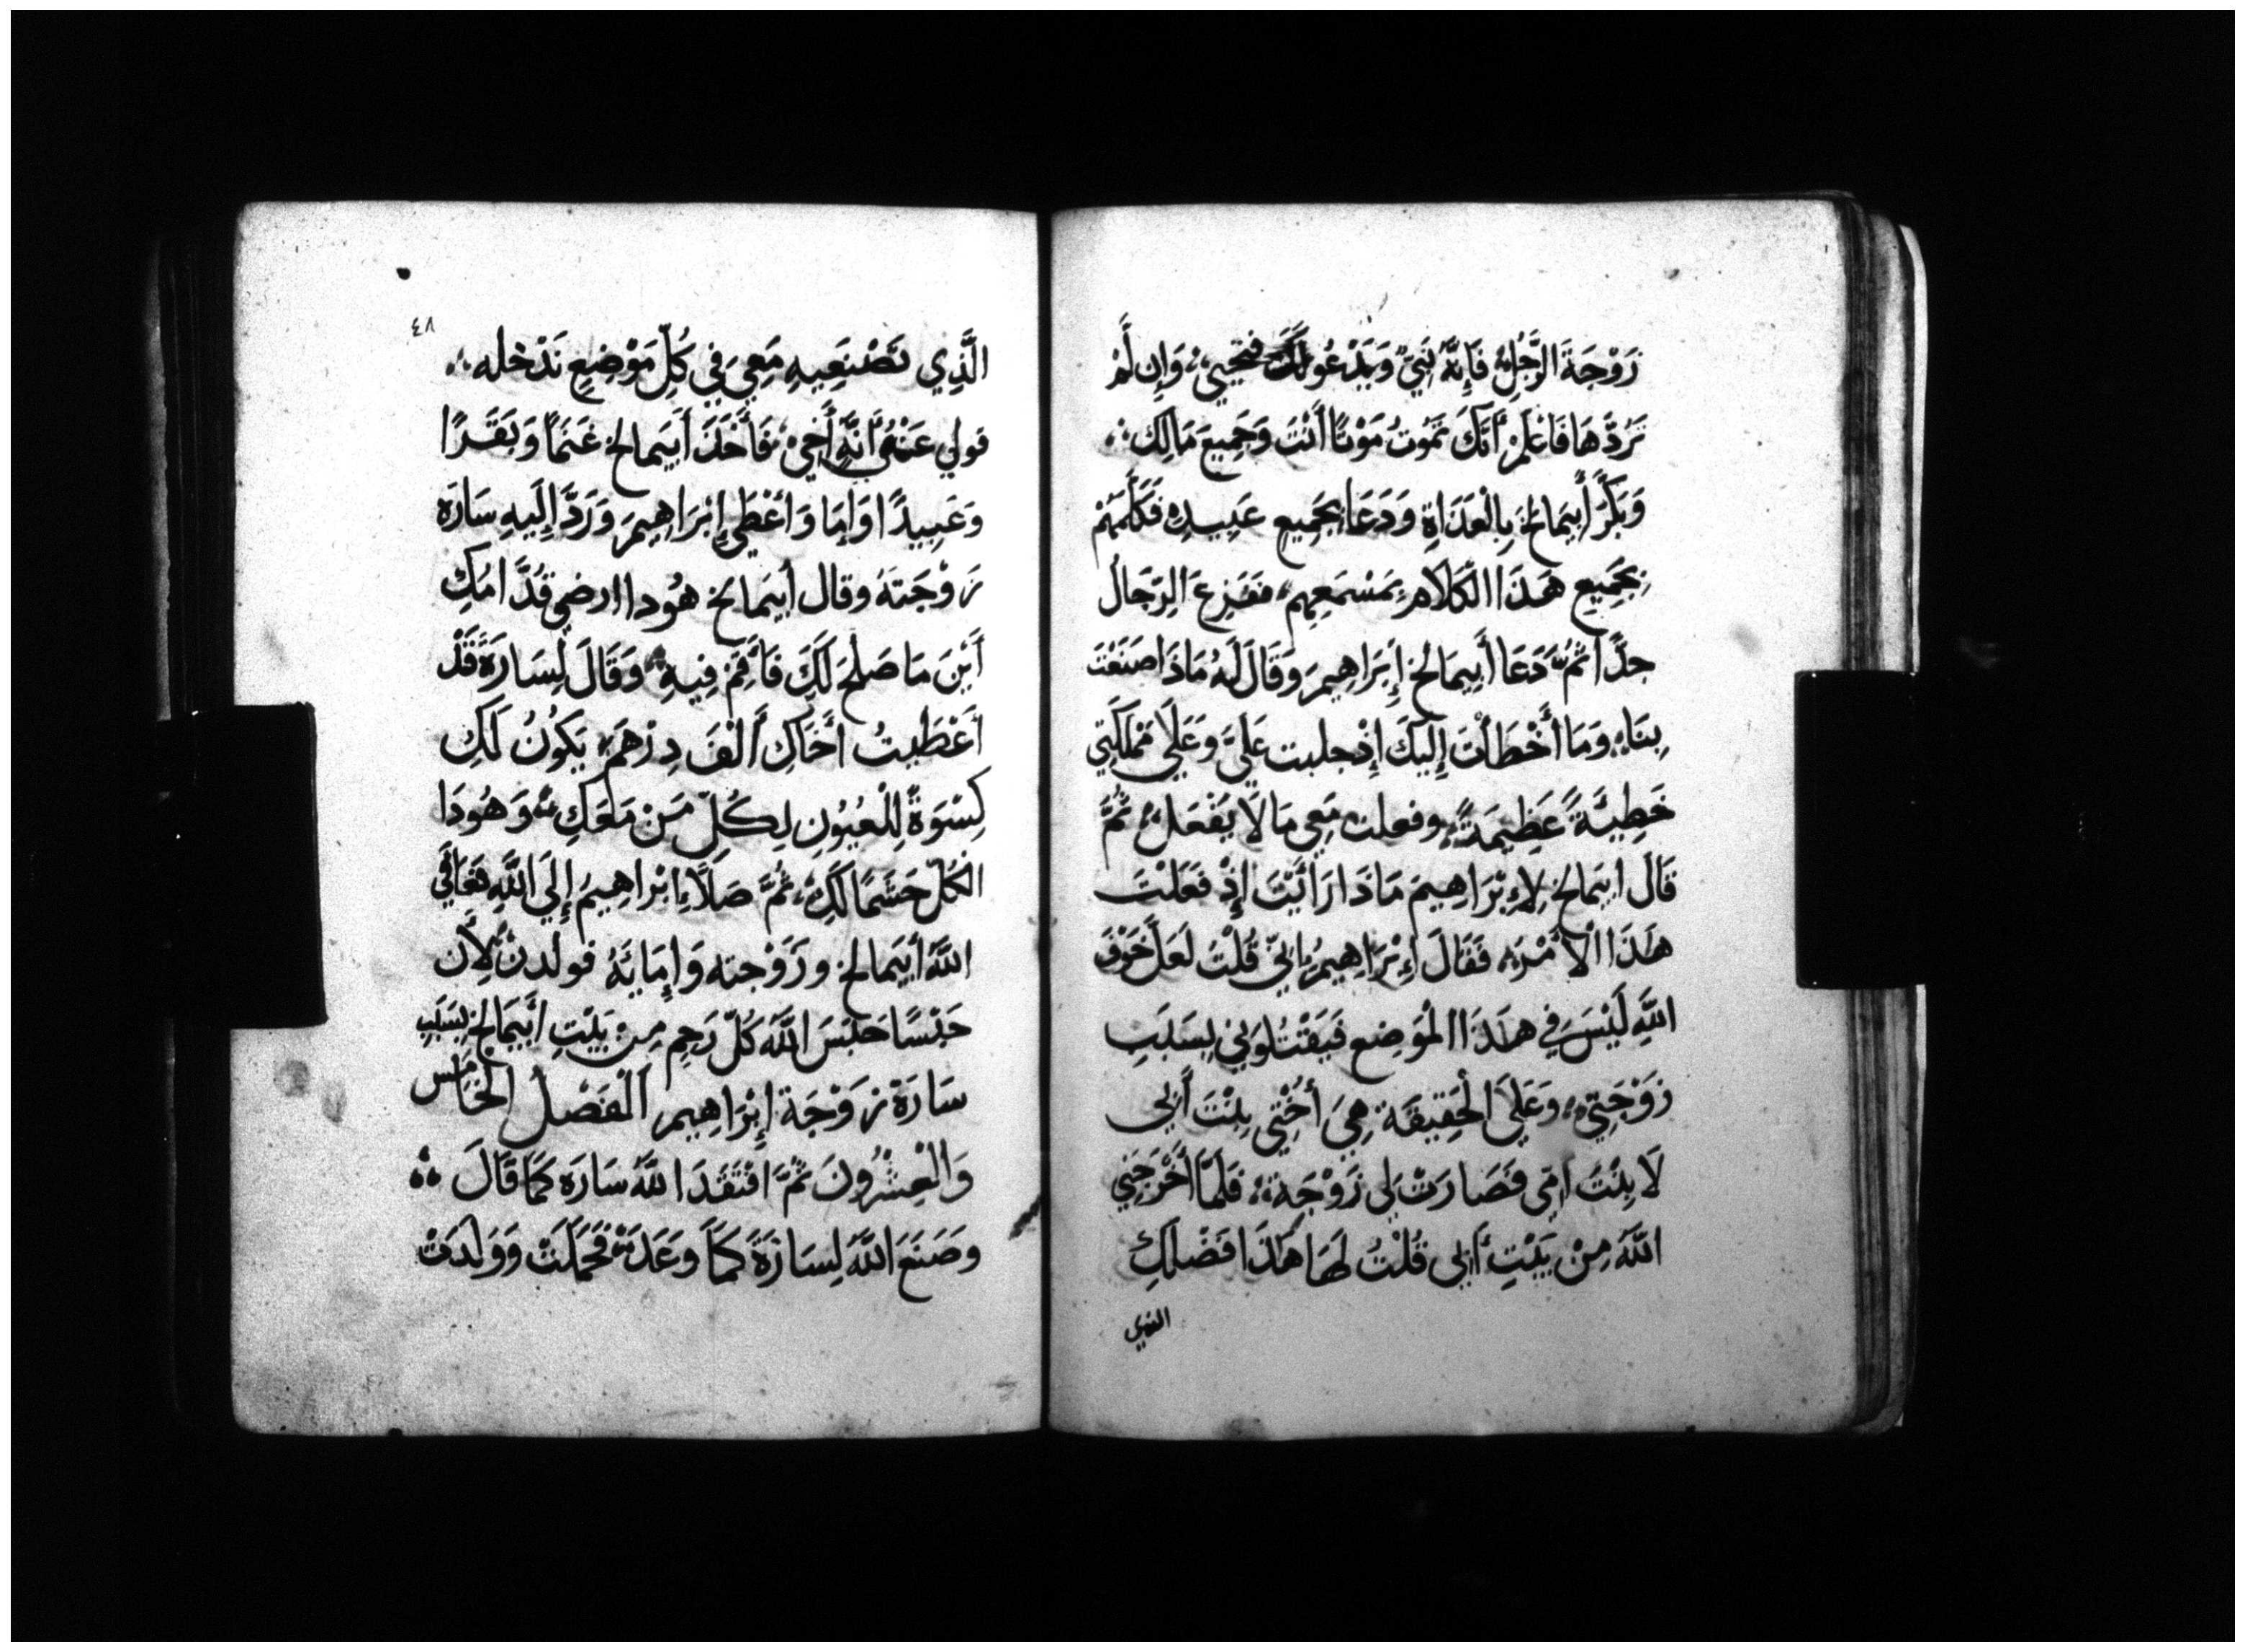 زَوْجَةَ الرَّجُلِ فَإِنَّهُ نَبِيٌّ وَيَدْعُو لَكَ فتحيى، وَإِن لَّمْ
تَرُدَّهَا فَاعْلَمْ أَنَّكَ تَمُوتُ مَوْتًا أَنْتَ وَجَمِيعَ مَا لَك
وَبَكَّرَ أَبِيمَالِخَ بِالْغَدَاةِ وَدَعَا بجَمِيعِ عَبِيدِهِ فَكَلَّمَهُمْ
بِجَمِيعِ هَذَا الكَلَامِ بِمَسْمَعِهِمِ، فَفَزِعَ الرِّجَالُ
جدًّا ثُمَّ دَعَا أَبِيمَالِخ إِبْرَاهِيمَ وَقَالَ لَهُ مَاذَا صَنَعْتَ
بِنَا، وَمَا أَخْطَأْتَ إِلَيْكَ إِذْ جلبت عَلَيَّ وَعَلَى مَمْلَكَتِي
خَطِيَّةً عَظِيمَةً، وفعلت مَعِي مَا لَا يُفْعَلُ، ثُمَّ
قَالَ ابيمالخ لِإِبْرَاهِيمَ مَاذَا رَأَيْتَ إِذْ فَعَلْتَ
هَذَا الْأَمْرَ، فَقَالَ إِبْرَاهِيمُ إِنِّي قُلْتُ لَعَلَّ خَوْفَ
اللَّهِ لَيْسَ فِي هذَا الْمَوْضِعِ فَيَقْتُلُونِي بِسَبَبِ
زَوْجَتِي، وَعَلَى الْحَقِيقَة هِيَ أُخْتِي بِنْتَ أَبِي
لَا بِنْتَ امي فَصَارَتْ لِي زَوْجَة، فَلَمَّا أَخْرَجَنِي
اللَّهُ مِنْ بَيْتِ أَبِي قُلْتُ لَهَا هَذَا فَضْلُكِ
الذي
٤٨
الَّذِي تَصْنَعِيهِ مَعِي فِي كُلِّ مَوْضِعٍ نَدْخله
قولي عَنِّي أَنَّهُ أَخِي، فَأَخَذَ أَبِيمالخ غَنَمًا وَبَقَرًا
وَعَبِيدًا وَإِمَا وَأَعْطَى إِبْرَاهِيمَ وَرَدَّ إِلَيْهِ سَارَة
زَوْجَتَهُ وقال أبِيمَالخ هُودا ارضي قُدَّامُكِ
أَيْنَ مَا صَلُحَ لَكَ فَأَقِمْ فِيهِ، وَقَالَ لِسَارَةَ قَدْ
أَعْطَيتُ أَخَاكِ أَلْفَ دِرْهَمٍ، يَكُونُ لَكِ
كِسْوَةً لِلْعُيُونِ لِكُلِّ مَنْ مَعَكِ، وَهُودَا
الكُلّ حَشَمًا لَكِ، ثُمَّ صَلَّا إِبْرَاهِيمُ إِلَى اللَّهِ فعَافَى
اللَّهُ أَبِيمالخ وزَوْجته وَإِمَائَهُ فولدن لِأَن
حَبْسًا حَبَسَ اللَّهُ كُلّ رَحِم مِنْ بَيْتِ أَبِيمَالخ بِسَبَبِ
سَارَةَ زَوْجَة إِبْرَاهِيم الْفَصْل الخَامِس
وَالْعِشْرُونَ ثُمَّ افْتَقَدَ اللَّهُ سَارَة كَمَا قَالَ
وصَنَعَ اللَّهُ لِسَارَةَ كَمَا وَعَدَ، فَحَمَلَتْ وَوَلدَتْ